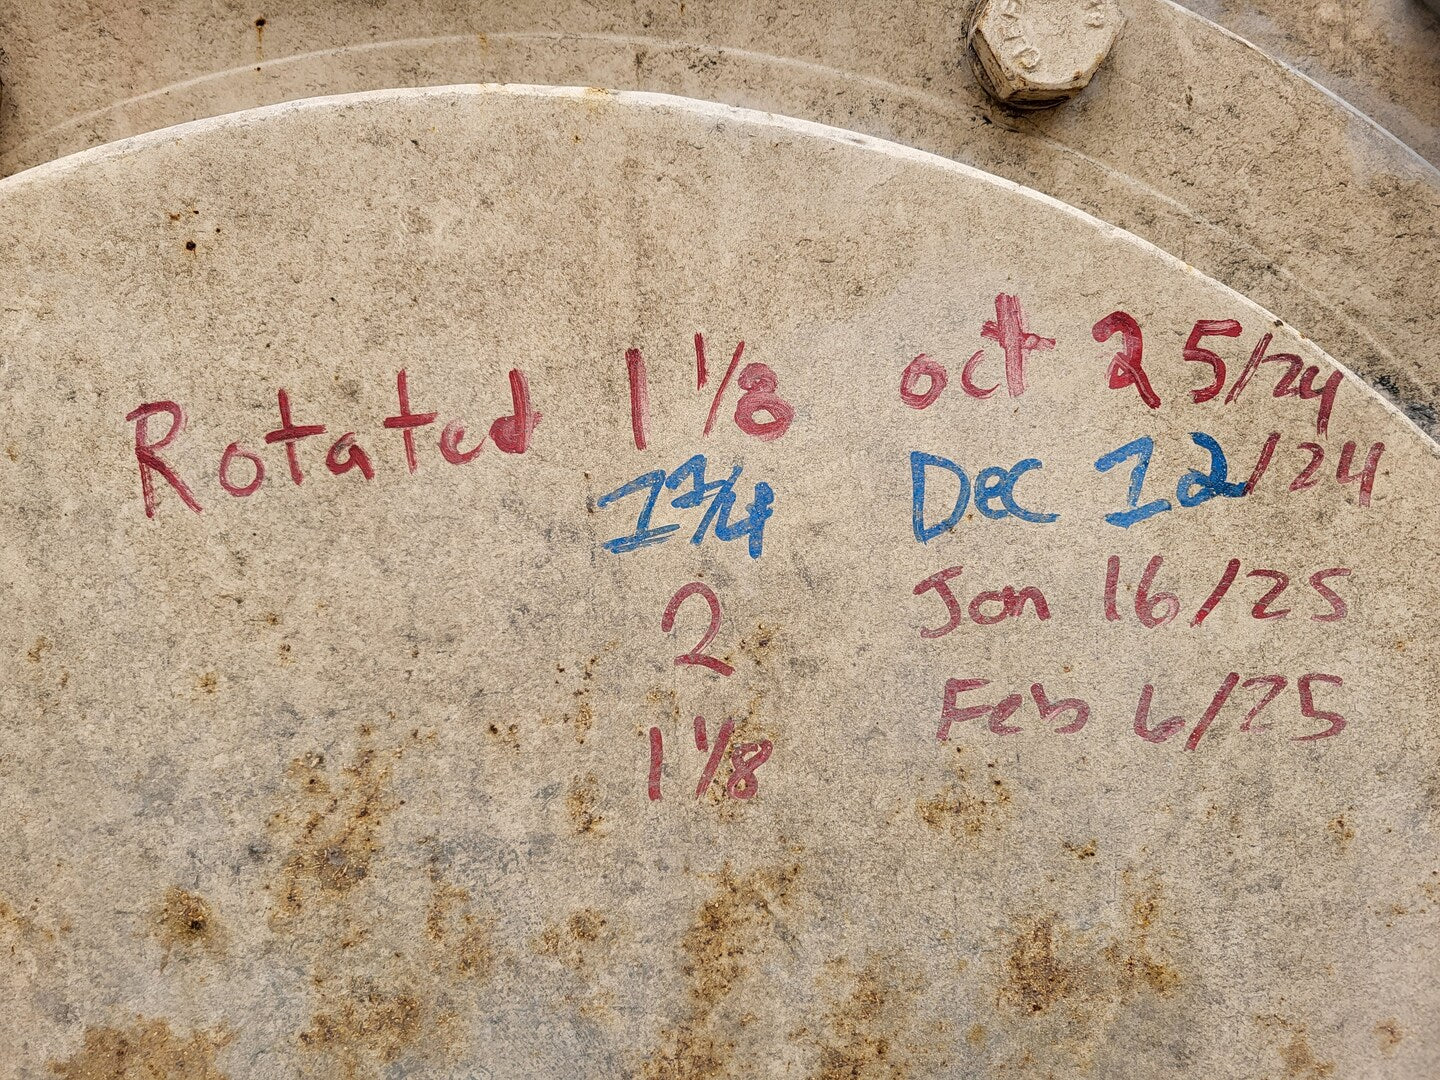 Rotated 1 1/8 oct 25/24
1 1/4 Dec 12/24
2 Jan 16/25
1 1/8 Feb 6/25